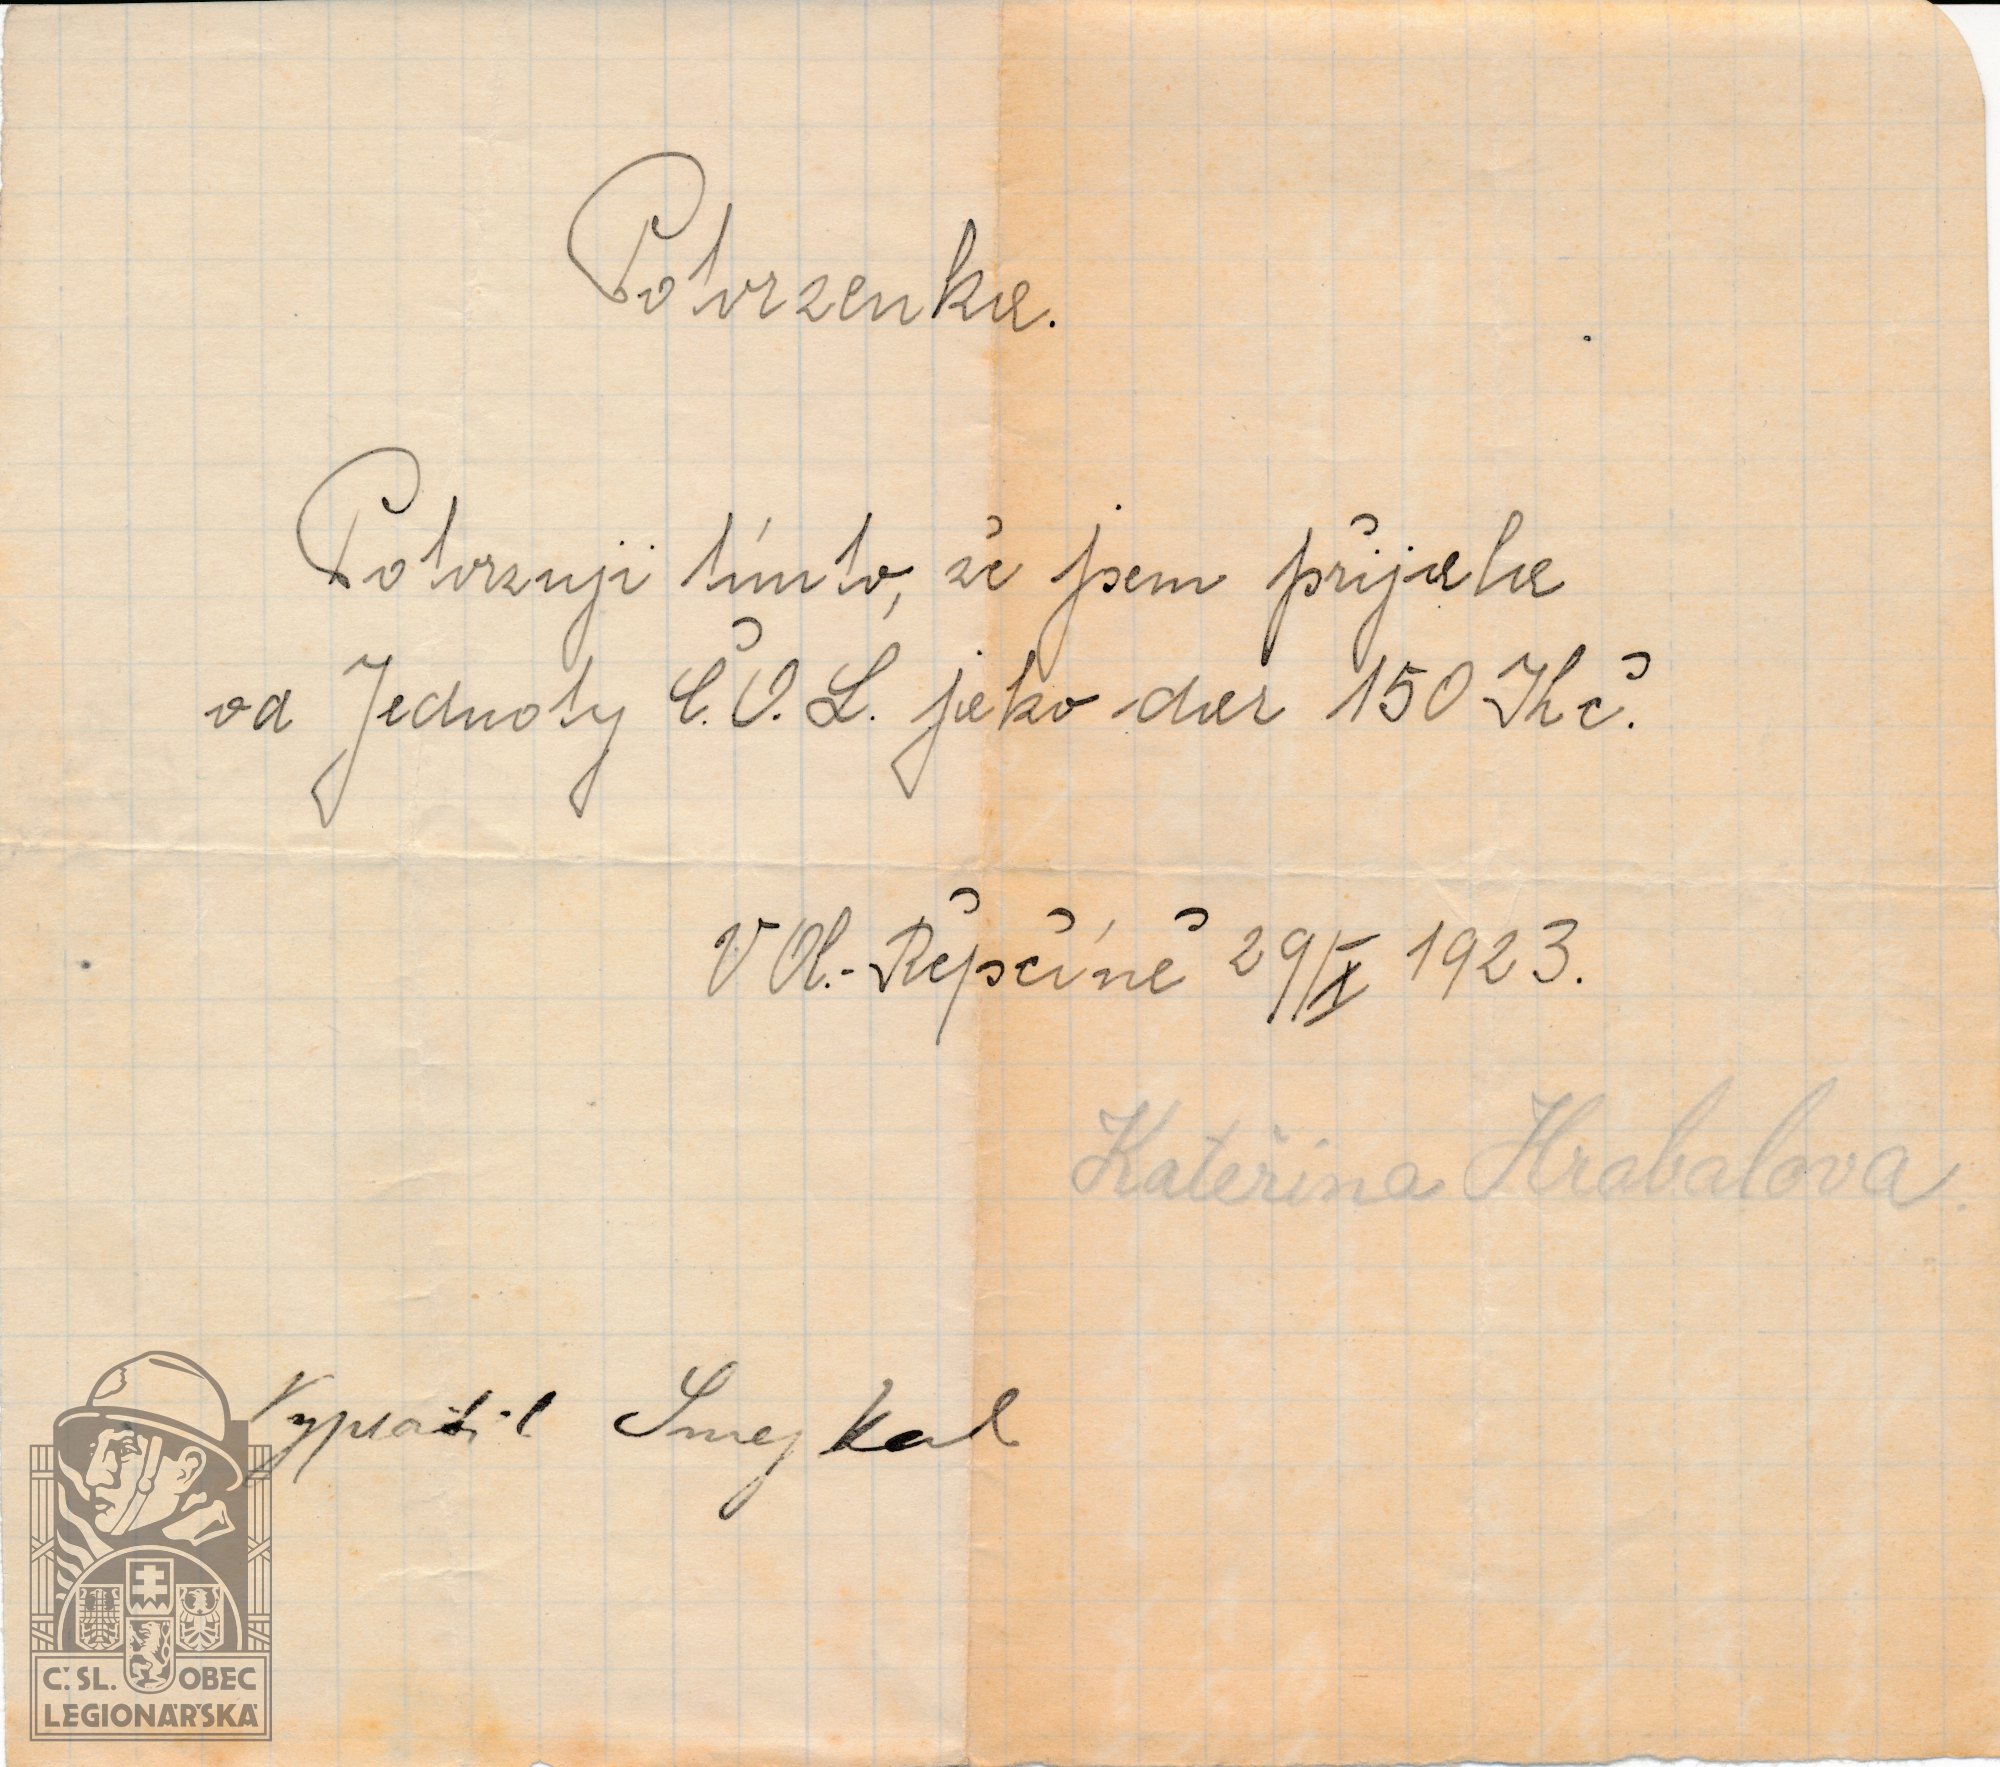 Potvrzenka.
Potvrzuji tímto, že jsem přijala
od Jednoty Č.O.L. jako dar 150 Kč.
V Ol.-Řepčíně 29/IX 1923.
Kateřina Hrabalova.
Vyplatil Smejkal
Č.SL. OBEC
LEGIONÁŘSKÁ